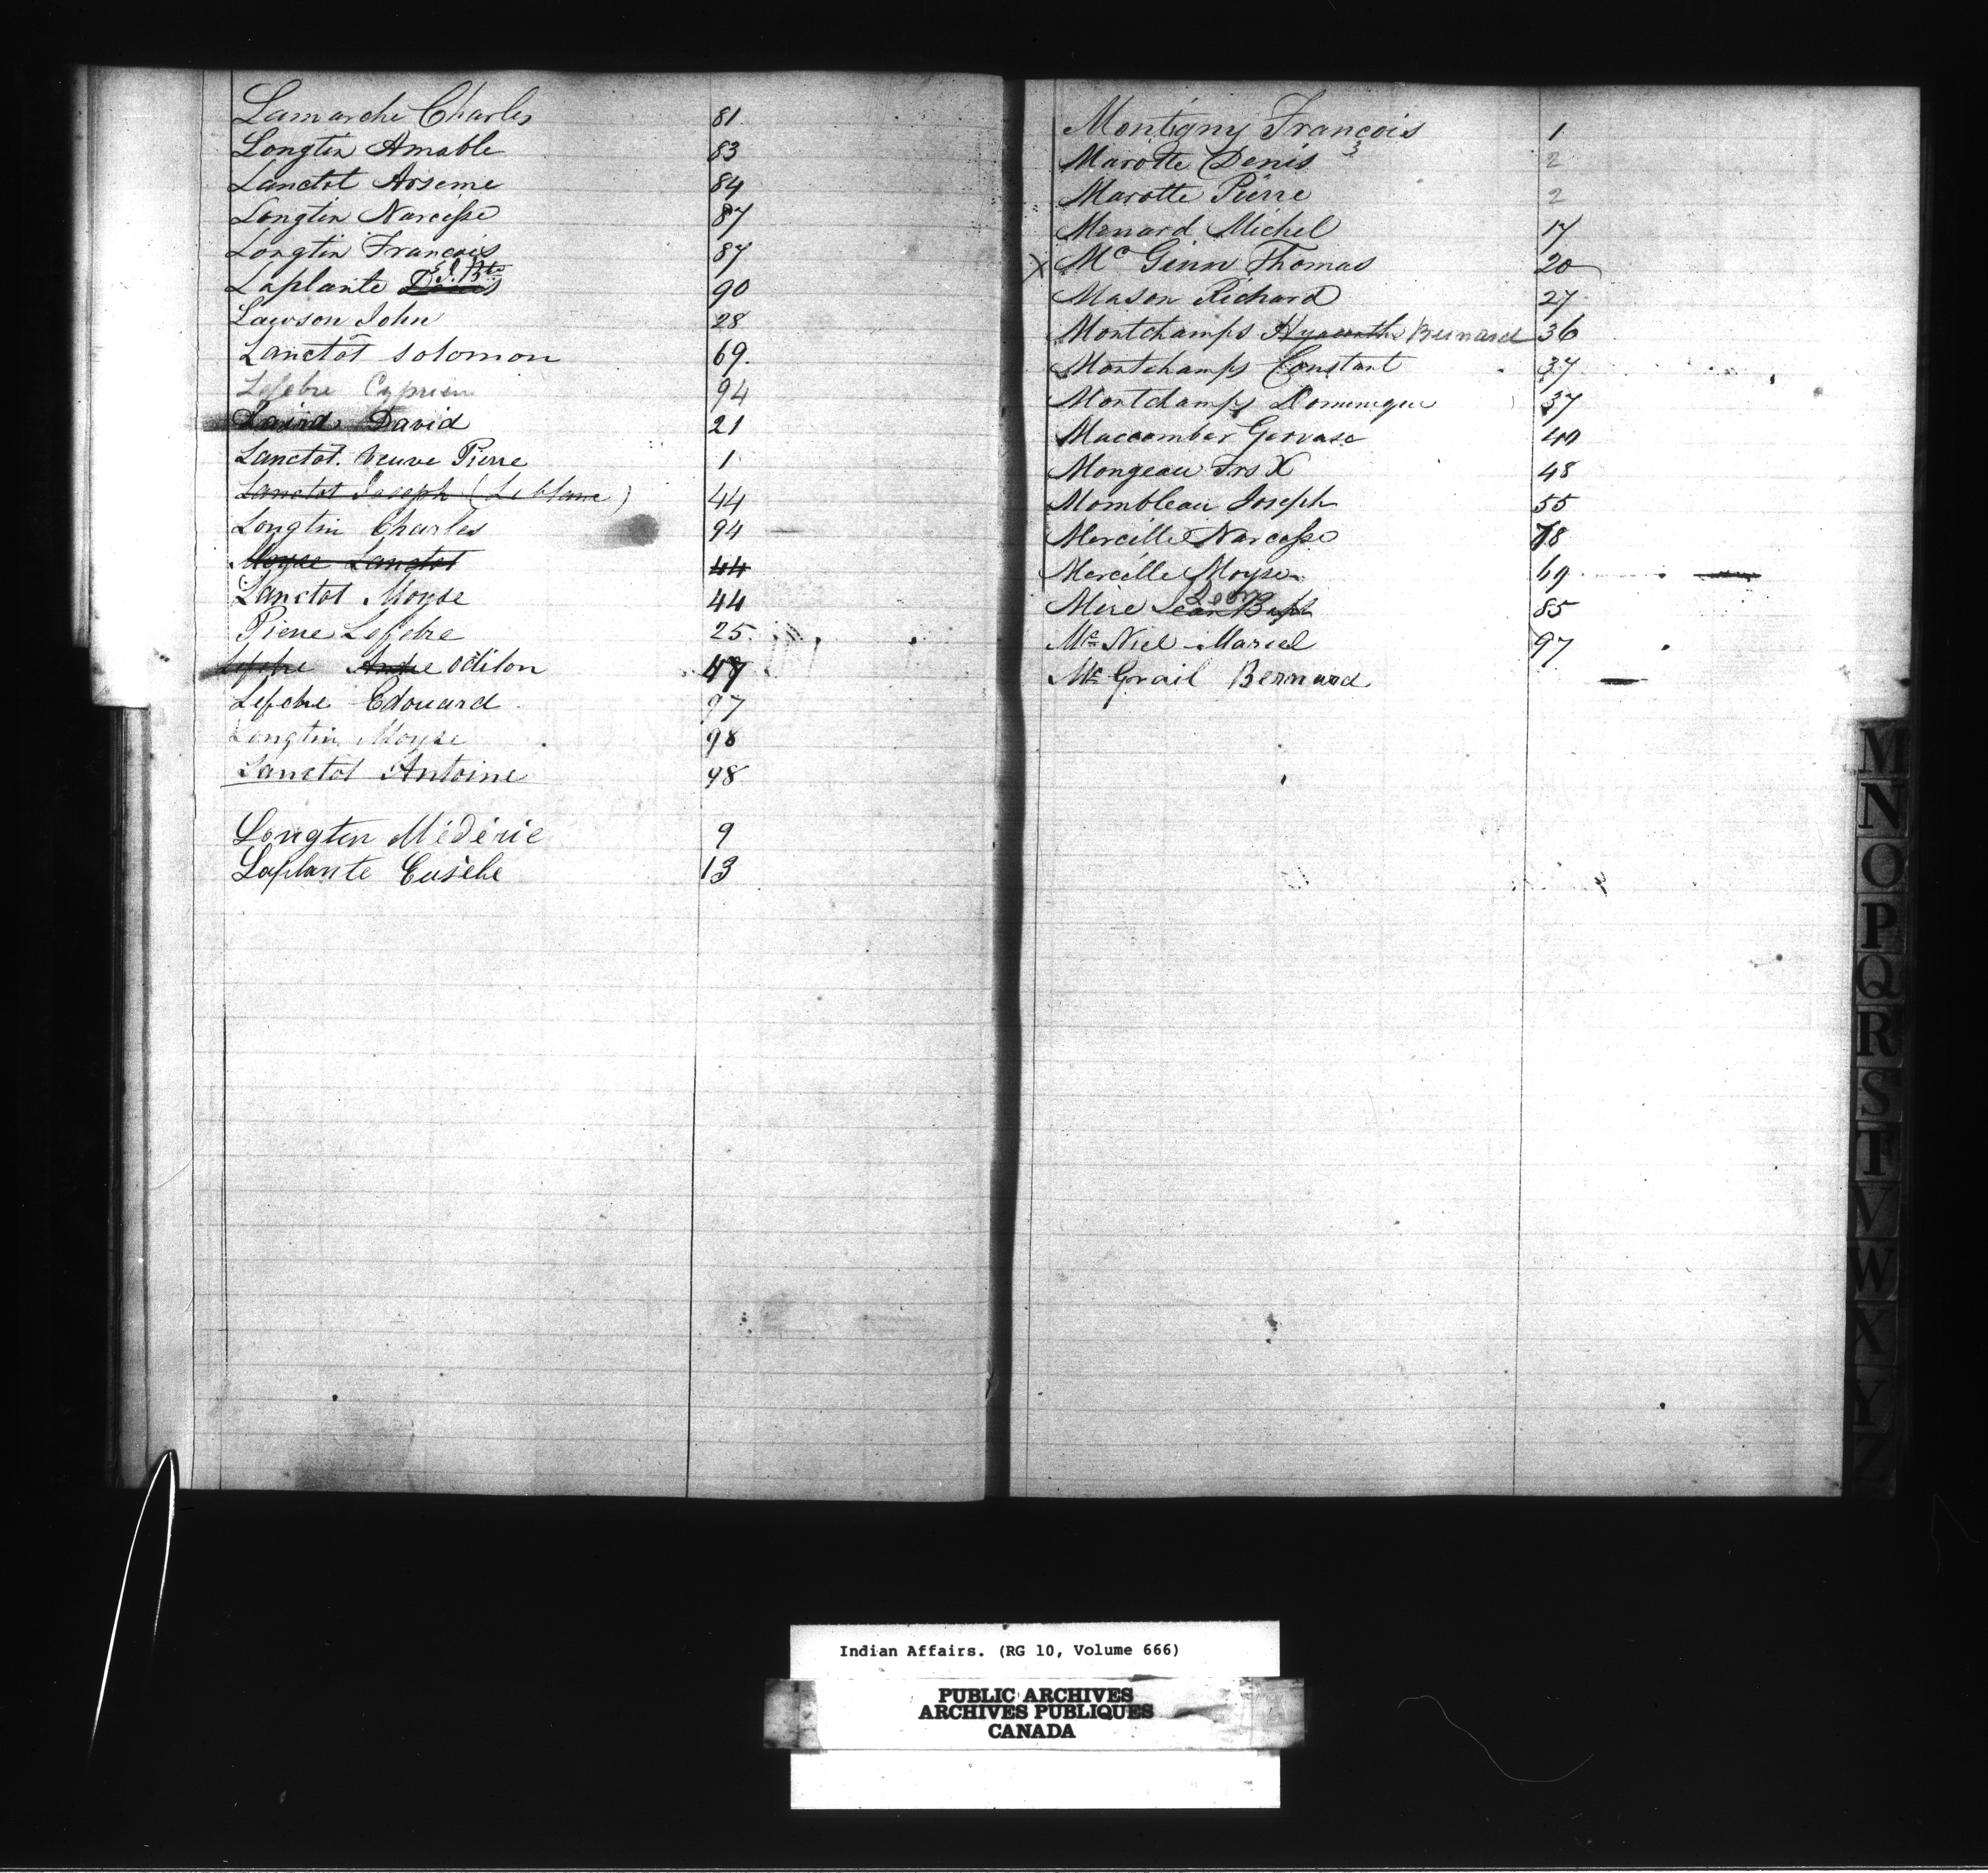 Lamarche Charles 81
Longtin Amable 83
Lanctot Arseme 84
Longtin Narcisse 87
Longtin Francois 87
Laplante J. Bte 90
Lawson John 28
Lanctot Solomon 69.
Lefebre Cyprien 94
Laird David 21
Lanctot. Veuve Pierre 1
Lanctot Joseph (Leblanc) 44
Longtin Charles 94
Moyse Lanctot 44
Lanctot Moyse 44
Pierre Lefebre 25.
Lefebre Andre Odilon 47
Lefebre Edouard 97
Longtin Moyse 98
Lanctot Antoine 98
Longtin Médéric 9
Laplante Eusèbe 13
Montigny Francois 1
Marotte Denis 3 2
Marotte Pierre 2
Menard Michel 17
X Mc Ginn Thomas 20
Mason Richard 27
Montchamps Hyacinthe Bernard 36
Montchamps Constant 37
Montchamps Dominique 37
Maccomber Gervase 40
Mongeau Frs X 48
Mombleau Joseph 55
Mercille Narcisse 78
Mercille Moyse 69
Mère Jean Bapt Léon 85
Mc Niel Marcel 97
Mc Grail Bernard
M
N
O
P
Q
R
S
T
V
W
X
Y
Z
Indian Affairs. (RG 10, Volume 666)
PUBLIC ARCHIVES
ARCHIVES PUBLIQUES
CANADA